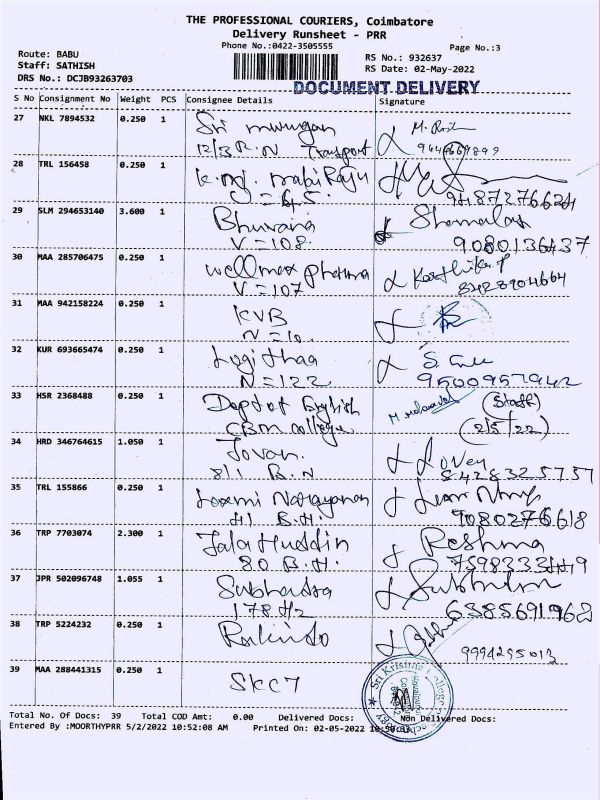 THE PROFESSIONAL COURIERS, Coimbatore
Delivery Runsheet - PRR
Phone No.:0422-3505555
Page No.:3
Route: BABU
Staff: SATHISH
DRS No.: DCJB93263703
RS No.: 932637
RS Date: 02-May-2022
DOCUMENT DELIVERY
S No Consignment No Weight PCS Consignee Details Signature
27 NKL 7894532 0.250 1 Sri murugan
12/13 R.N Transport
28 TRL 156458 0.250 1
9487276624
29 SLM 294653140 3.600 1 Bhuvana Shamala
V=108. 9080136437
30 MAA 285706475 0.250 1 wellmax pharma Karthik
V=107
31 MAA 942158224 0.250 1 KVB
N=10.
32 KUR 693665474 0.250 1 Logithaa
N=122 9500957942
33 HSR 2368488 0.250 1 Dept of English (Staff)
CBM college (2/5/22)
34 HRD 346764615 1.050 1 Jovan.
8/1 B.N 8428325757
35 TRL 155866 0.250 1 Laxmi Narayanan
41 B.H. 9080276618
36 TRP 7703074 2.300 1 Jala Huddin Reshma
80 B.H.
37 JPR 502096748 1.055 1 Subhadra
178 H2 6385691962
38 TRP 5224232 0.250 1
9994295013
39 MAA 288441315 0.250 1 SKCT
Sri Krishna College
Total No. Of Docs: 39 Total COD Amt: 0.00 Delivered Docs: Non Delivered Docs:
Entered By :MOORTHYPRR 5/2/2022 10:52:08 AM Printed On: 02-05-2022